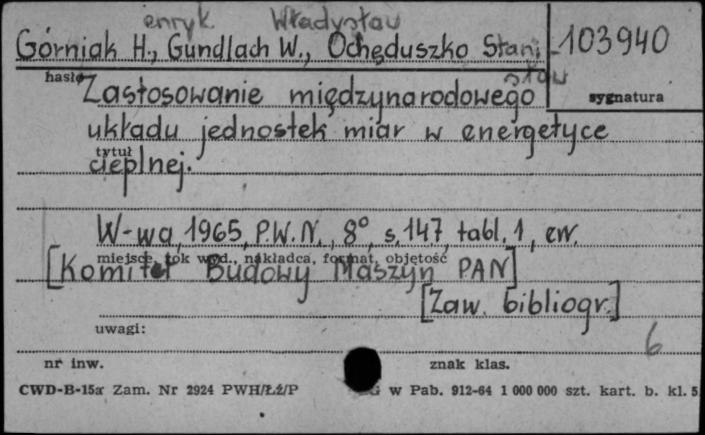 enryk. Władysław
Górniak H., Gundlach W., Ochęduszko Stani 103940
sław
hasło
Zastosowanie międzynarodowego sygnatura
układu jednostek miar w energetyce
tytuł
cieplnej.
W-wa, 1965, P.W.N., 8°, s. 147, tabl. 1, err.
miejsce, rok wyd., nakładca, format, objętość
[Komitet Budowy Maszyn PAN]
[Zaw. bibliogr.]
uwagi:
6
nr inw. znak klas.
CWD-B-15a Zam. Nr 2924 PWH/ŁŻ/P w Pab. 912-64 1 000 000 szt. kart. b. kl. 5